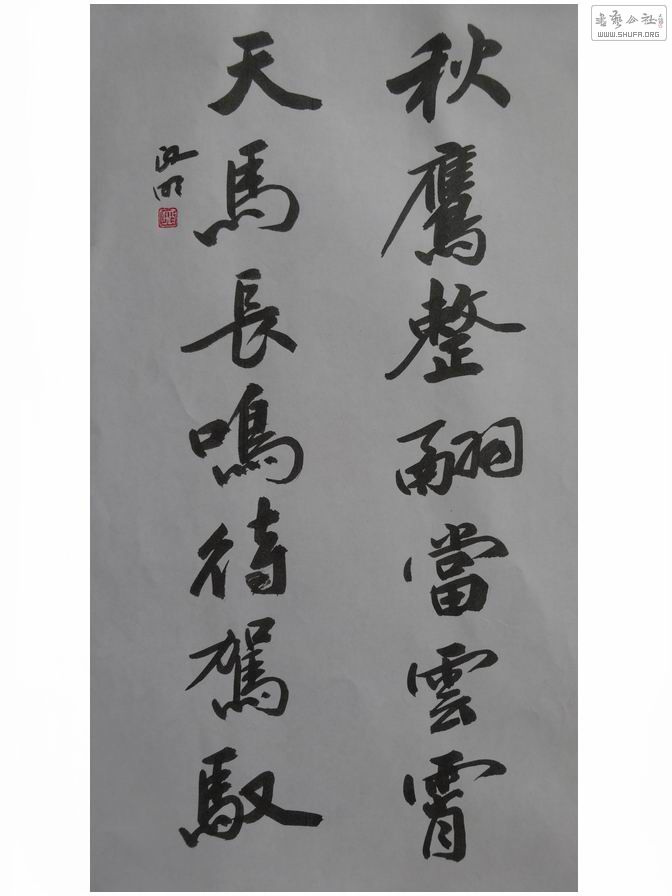 秋鷹整翮當雲霄
天馬長鳴待駕馭
書藝公社
WWW.SHUFA.ORG